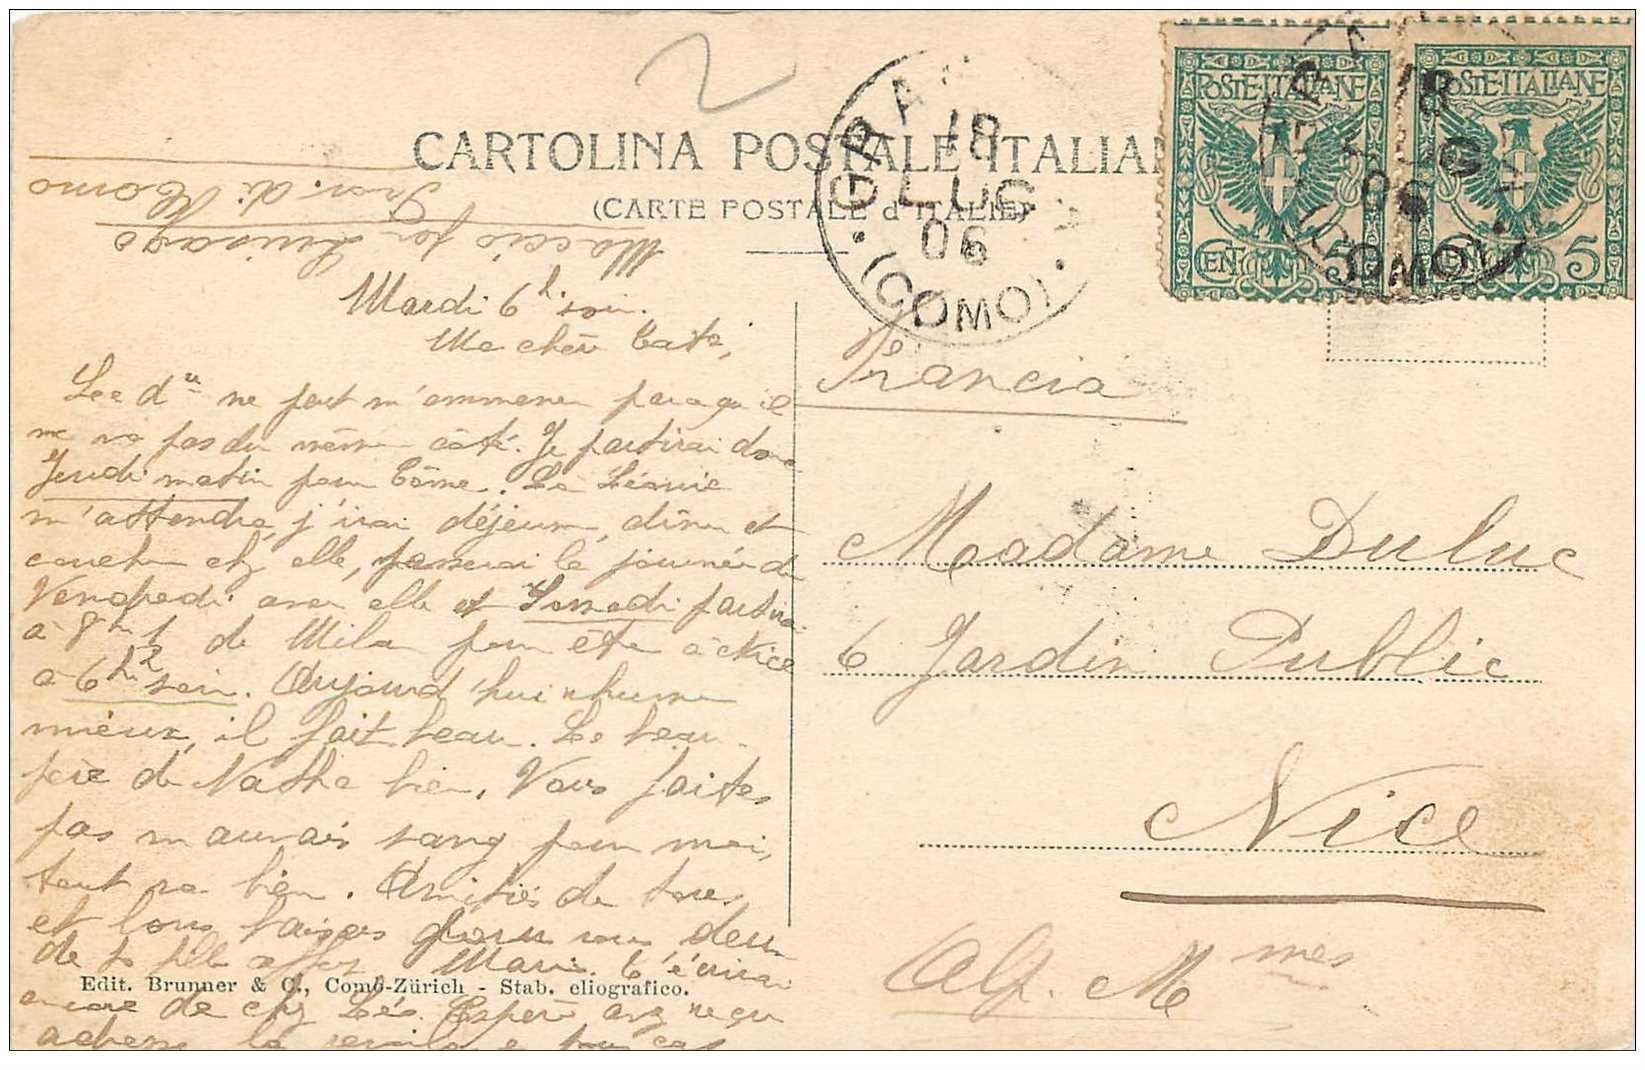 CARTOLINA POSTALE ITALIAN
(CARTE POSTALE d'ITALIE)
GRA
18
LUG
06
(COMO)
POSTE·ITALIANE
CEN 5
POSTE·ITALIANE
CEN 5
18
LUG
06
(COMO)
Maccio per Luisago
Prov. di Como
Mardi 6h soir.
Ma chère Tata,
Léo ne peut m'emmener parce qu'il
ne va pas du même côté. Je partirai donc
Jeudi matin pour Côme. La Léonie
m'attendra, j'irai déjeuner, dîner et
coucher chez elle, passerai la journée du
Vendredi avec elle et Samedi partirai
à 8h de Milan pour être à Nice
à 6h soir. Aujourd'hui
mieux, il fait beau. Le beau
père de bien. Vous faites
pas mauvais sang pour moi,
tout va bien. Amitiés de tous
et bons baisers pour vous deux
de Marie. t'écrirai
encore de chez Léo. Espère avez reçu
adresse
Edit. Brunner & C., Como-Zürich - Stab. eliografico.
Francia
Madame Duluc
6 Jardin Public
Nice
Alp. Mmes